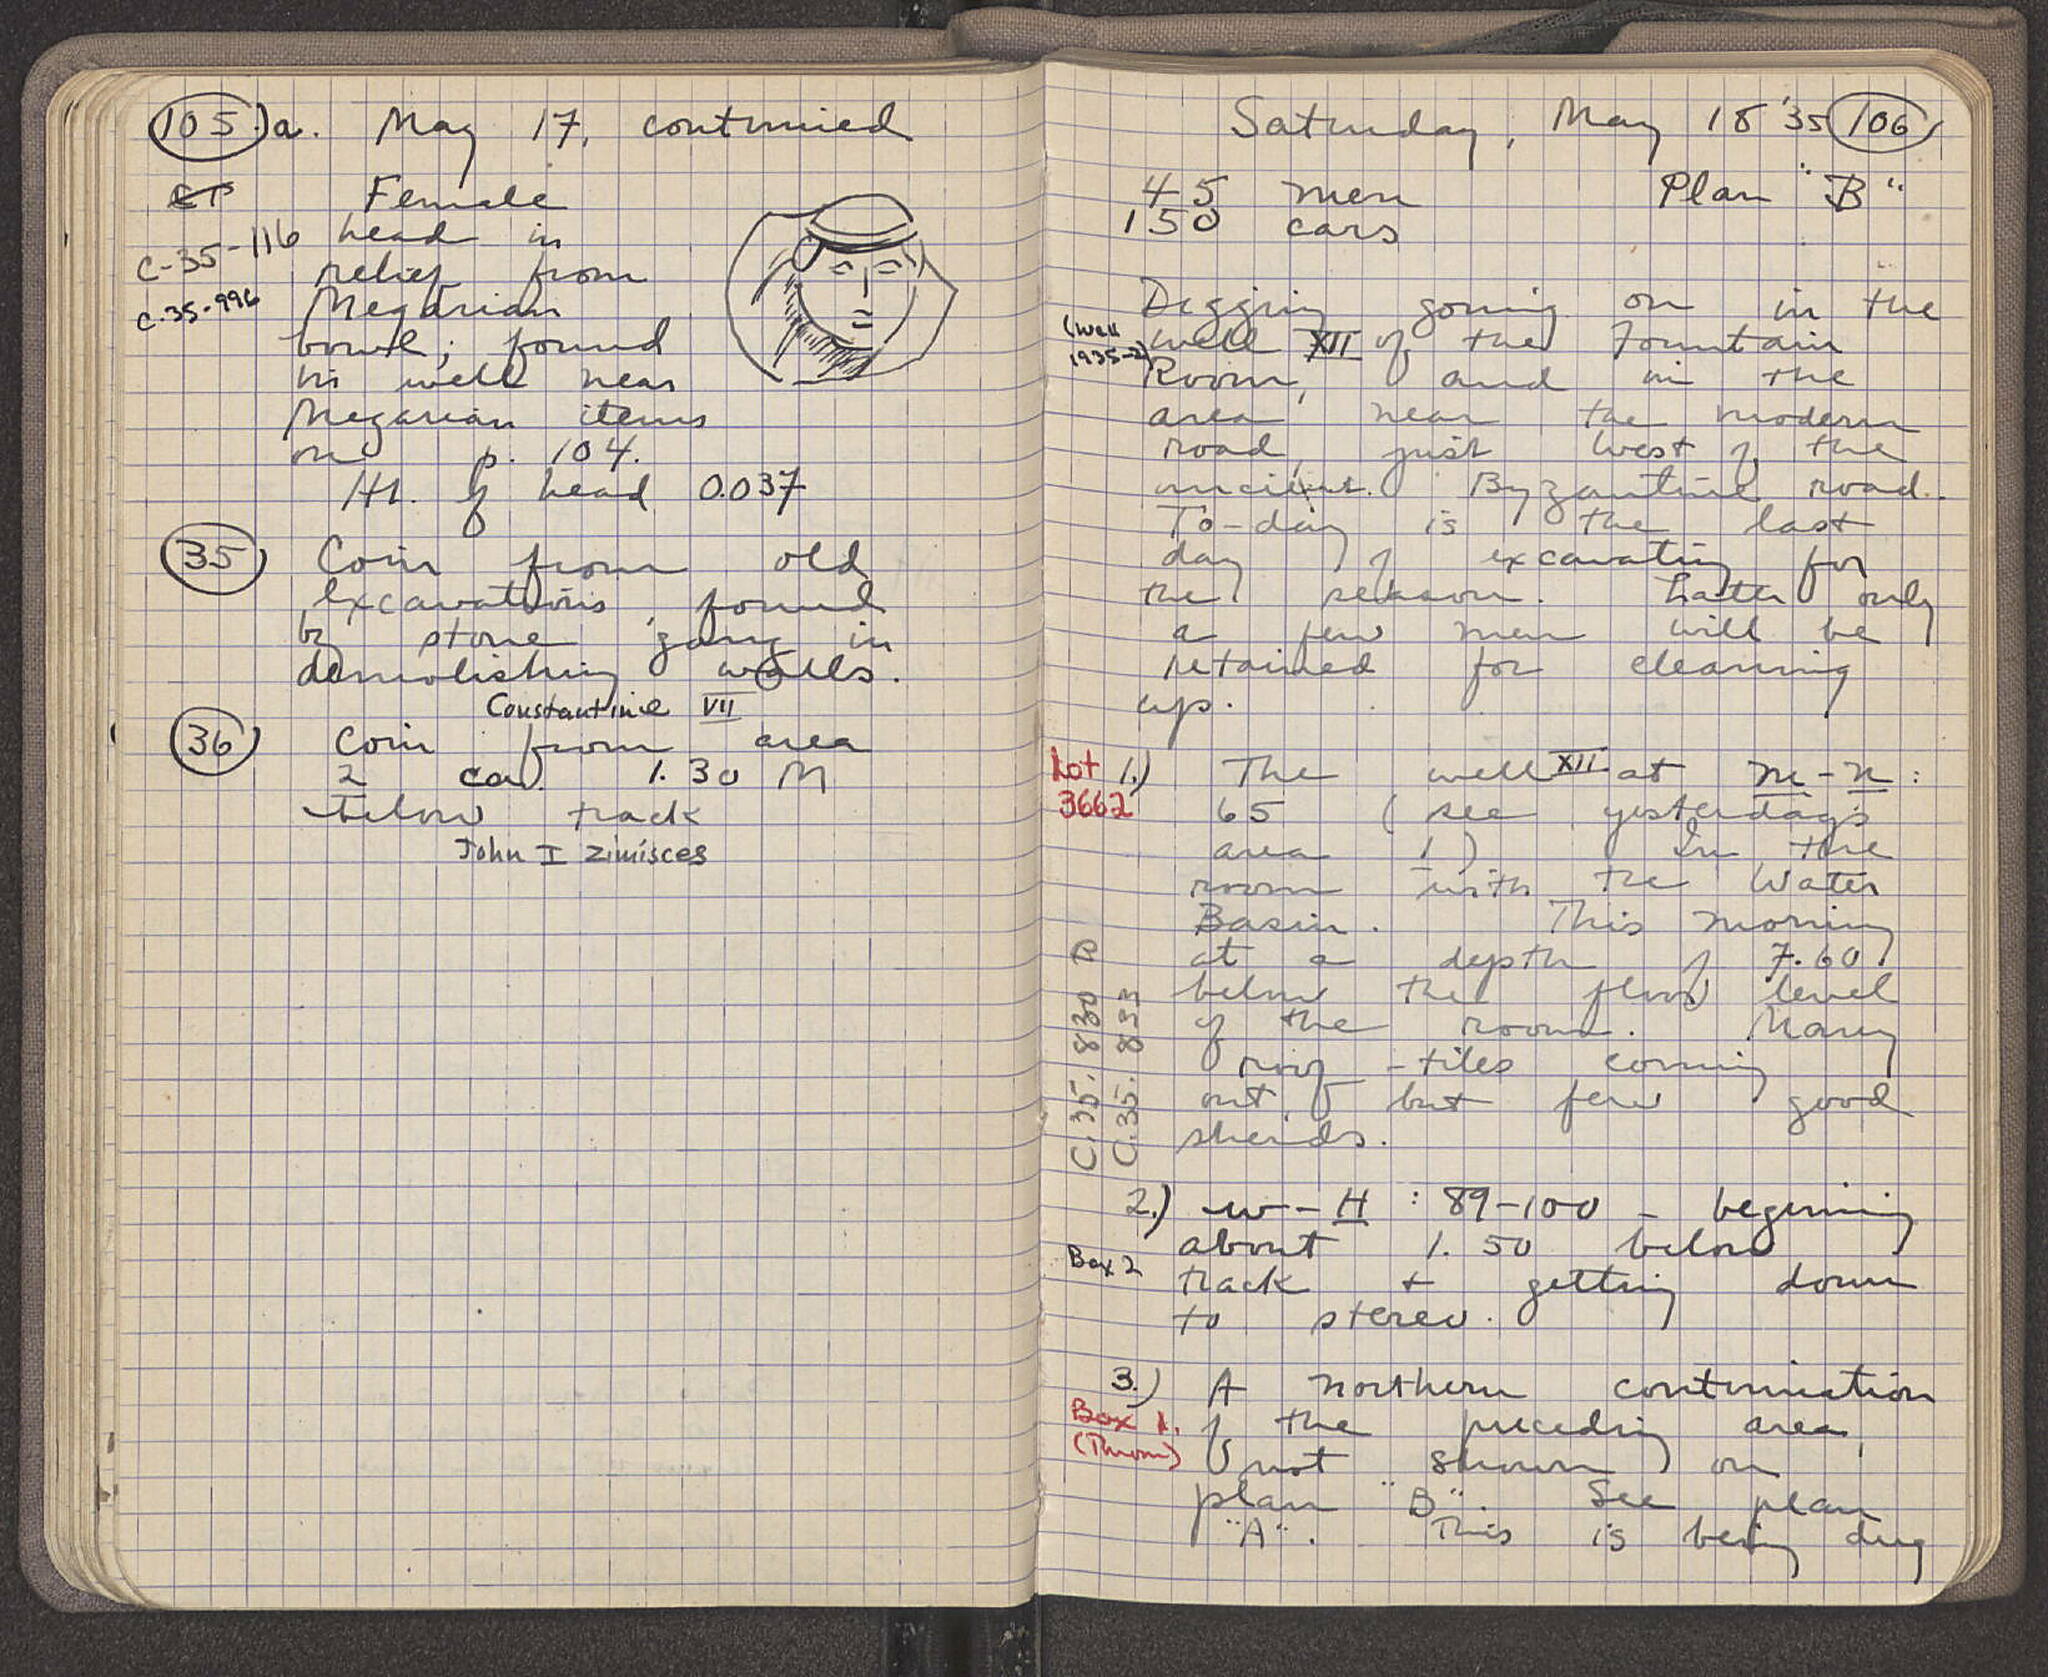 105)a. May 17, continued
ET Female
C-35-116 head in
relief from
C.35-996 Megarian
bowl; found
in well near
Megarian items
on p. 104.
Ht. of head 0.037
35) Coin from old
excavations, found
by stone gang in
demolishing walls.
Constantine VII
36) Coin from area
2 ca. 1.30 M
below track
John I Zimisces
Saturday, May 18 '35 106
45 men Plan "B"
150 cars
Digging going on in the
(Well 1935-2) well XII of the Fountain
Room, and in the
area near the modern
road, just West of the
ancient Byzantine road.
To-day is the last
day of excavating for
the season. Later only
a few men will be
retained for cleaning
up.
Lot 3662 1.) The well XII at m-n:
65 (see yesterday's
area 1) In the
room with the Water
Basin. This morning
at a depth of 7.60
below the floor level
of the room. Many
roof-tiles coming
out, but few good
sherds.
C.35.830
C.35.833
2.) w-H : 89-100 - beginning
about 1.50 below
Box 2 track + getting down
to stereo.
3.) A northern continuation
Box 1. of the preceding area,
(Thrown) not shown on
plan "B". See plan
"A". This is being dug